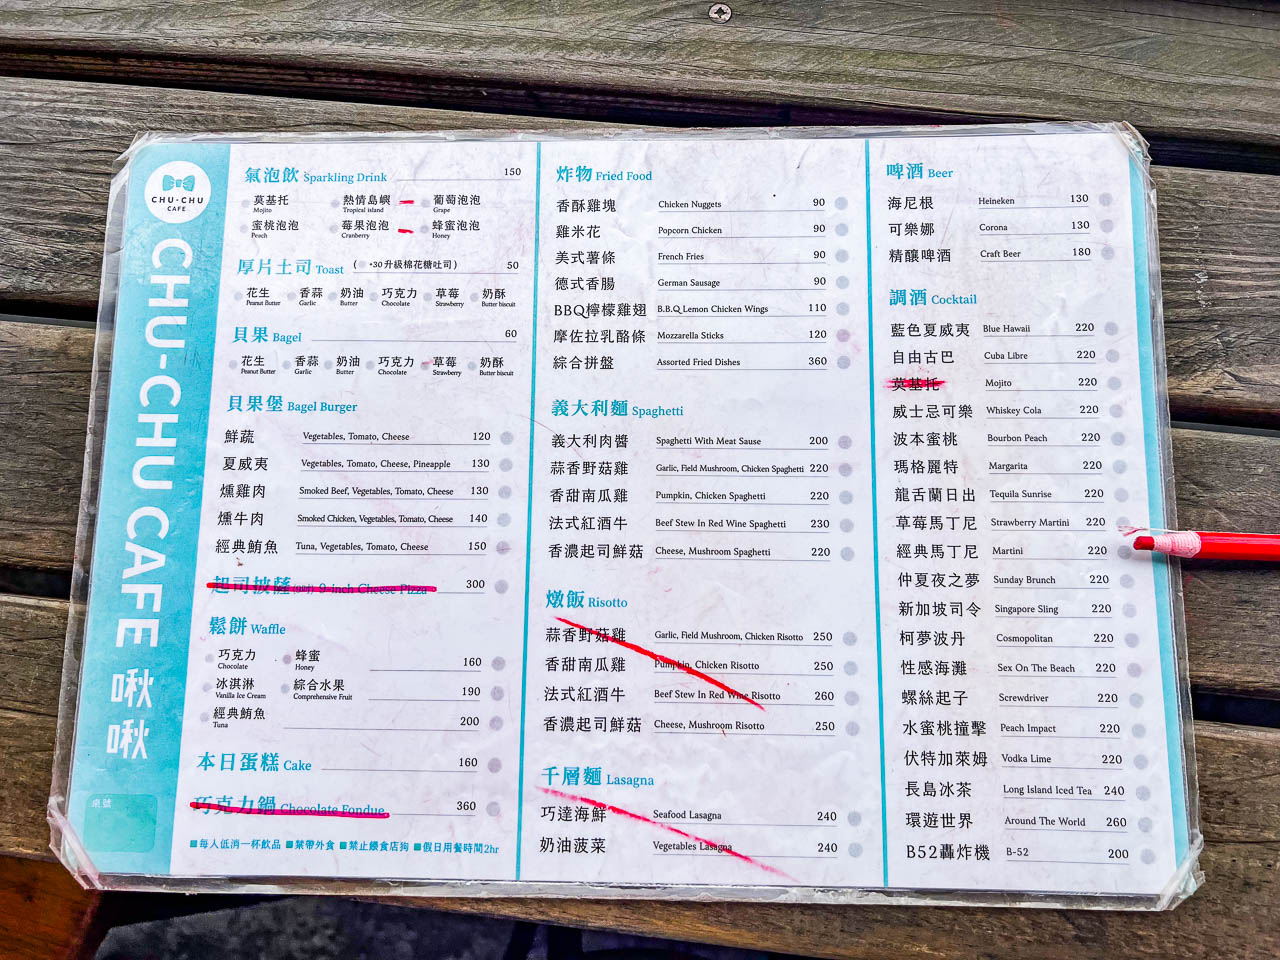 CHU-CHU
CAFE
CHU-CHU CAFE 啾啾
桌號
氣泡飲 Sparkling Drink 150
莫基托 熱情島嶼 葡萄泡泡
Mojito Tropical island Grape
蜜桃泡泡 莓果泡泡 蜂蜜泡泡
Peach Cranberry Honey
厚片土司 Toast ( +30升級棉花糖吐司) 50
花生 香蒜 奶油 巧克力 草莓 奶酥
Peanut Butter Garlic Butter Chocolate Strawberry Butter biscuit
貝果 Bagel 60
花生 香蒜 奶油 巧克力 草莓 奶酥
Peanut Butter Garlic Butter Chocolate Strawberry Butter biscuit
貝果堡 Bagel Burger
鮮蔬 Vegetables, Tomato, Cheese 120
夏威夷 Vegetables, Tomato, Cheese, Pineapple 130
燻雞肉 Smoked Beef, Vegetables, Tomato, Cheese 130
燻牛肉 Smoked Chicken, Vegetables, Tomato, Cheese 140
經典鮪魚 Tuna, Vegetables, Tomato, Cheese 150
起司披薩 9-inch Cheese Pizza 300
鬆餅 Waffle
巧克力 蜂蜜 160
Chocolate Honey
冰淇淋 綜合水果 190
Vanilla Ice Cream Comprehensive Fruit
經典鮪魚 200
Tuna
本日蛋糕 Cake 160
巧克力鍋 Chocolate Fondue 360
■每人低消一杯飲品 ■禁帶外食 ■禁止餵食店狗 ■假日用餐時間2hr
炸物 Fried Food
香酥雞塊 Chicken Nuggets 90
雞米花 Popcorn Chicken 90
美式薯條 French Fries 90
德式香腸 German Sausage 90
BBQ檸檬雞翅 B.B.Q Lemon Chicken Wings 110
摩佐拉乳酪條 Mozzarella Sticks 120
綜合拼盤 Assorted Fried Dishes 360
義大利麵 Spaghetti
義大利肉醬 Spaghetti With Meat Sause 200
蒜香野菇雞 Garlic, Field Mushroom, Chicken Spaghetti 220
香甜南瓜雞 Pumpkin, Chicken Spaghetti 220
法式紅酒牛 Beef Stew In Red Wine Spaghetti 230
香濃起司鮮菇 Cheese, Mushroom Spaghetti 220
燉飯 Risotto
蒜香野菇雞 Garlic, Field Mushroom, Chicken Risotto 250
香甜南瓜雞 Pumpkin, Chicken Risotto 250
法式紅酒牛 Beef Stew In Red Wine Risotto 260
香濃起司鮮菇 Cheese, Mushroom Risotto 250
千層麵 Lasagna
巧達海鮮 Seafood Lasagna 240
奶油菠菜 Vegetables Lasagna 240
啤酒 Beer
海尼根 Heineken 130
可樂娜 Corona 130
精釀啤酒 Craft Beer 180
調酒 Cocktail
藍色夏威夷 Blue Hawaii 220
自由古巴 Cuba Libre 220
莫基托 Mojito 220
威士忌可樂 Whiskey Cola 220
波本蜜桃 Bourbon Peach 220
瑪格麗特 Margarita 220
龍舌蘭日出 Tequila Sunrise 220
草莓馬丁尼 Strawberry Martini 220
經典馬丁尼 Martini 220
仲夏夜之夢 Sunday Brunch 220
新加坡司令 Singapore Sling 220
柯夢波丹 Cosmopolitan 220
性感海灘 Sex On The Beach 220
螺絲起子 Screwdriver 220
水蜜桃撞擊 Peach Impact 220
伏特加萊姆 Vodka Lime 220
長島冰茶 Long Island Iced Tea 240
環遊世界 Around The World 260
B52轟炸機 B-52 200